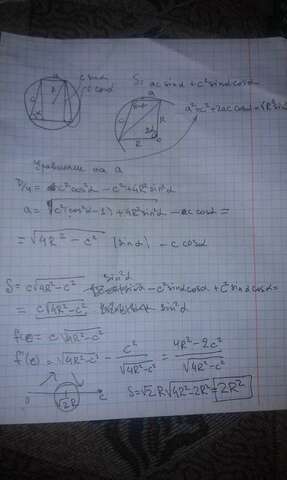 a
c sinα
c cosα
S = ac sinα + c² sinα cosα
a² + c² + 2ac cosα = 4R² sin²α
Уравнение на a
D/4 = c² cos²α - c² + 4R² sin²α
a = √(c²(cos²α - 1) + 4R² sin²α) - c cosα =
= √(4R² - c²) (sinα) - c cosα
S = c√(4R² - c²) sin²α - c² sinα cosα + c² sinα cosα =
= c√(4R² - c²) sin²α
f(c) = c√(4R² - c²)
f'(c) = √(4R² - c²) - c²/√(4R² - c²) = (4R² - 2c²)/√(4R² - c²)
0 √2R c
S = √2R√(4R² - 2R²) = 2R²